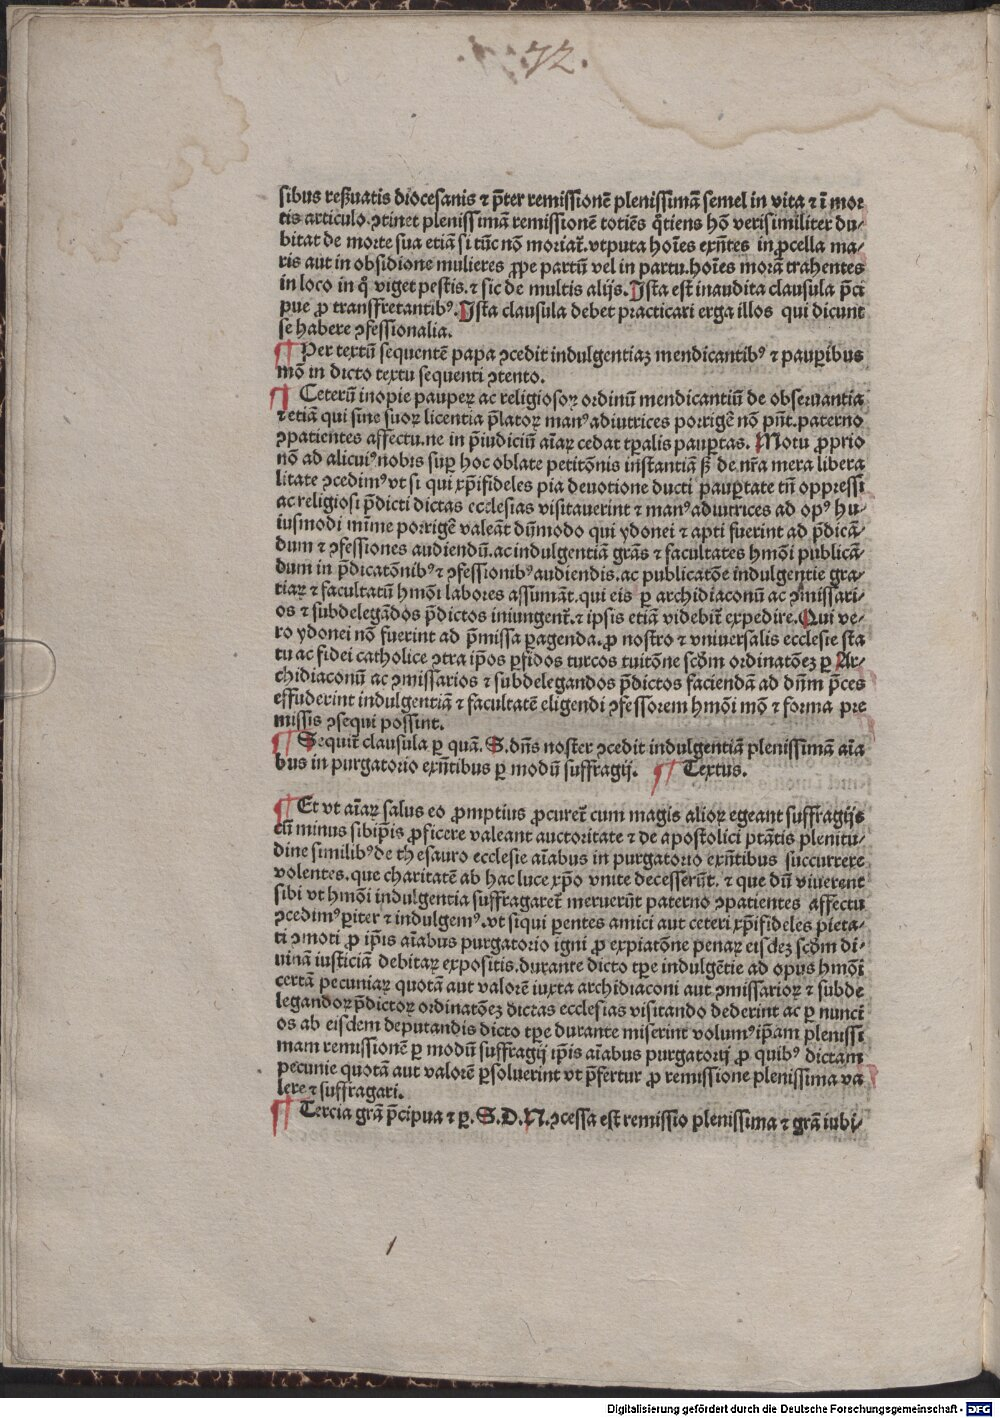 72.
sibus reßuatis diocesanis ⁊ p̃ter remissionẽ plenissimã semel in vita ⁊ ĩ mor
tis articulo.ↄtinet plenissimã remissionẽ totiẽs q̃tiens hõ verisimiliter du⸗
bitat de morte sua etiã si tũc nõ moriat᷑.vtputa hoĩes exñtes in ꝓcella ma⸗
ris aut in obsidione mulieres ꝓpe partũ vel in partu.hoĩes morã trahentes
in loco in q̃ viget pestis.⁊ sic de multis alijs.Ista est inaudita clausula p̃ci
pue ꝓ transfretantibꝰ.Ista clausula debet practicari erga illos qui dicunt
se habere ↄfessionalia.
¶ Per textũ sequentẽ papa ↄcedit indulgentiaꝫ mendicantibꝰ ⁊ pauꝑibus
mõ in dicto textu sequenti ↄtento.
¶ Ceterũ inopie pauperꝝ ac religiosoꝝ ordinũ mendicantiũ de obseruantia
⁊ etiã qui sine suoꝝ licentia p̃latoꝝ manꝰ adiutrices porrigẽ nõ pñt.paterno
ↄpatientes affectu.ne in p̃iudiciũ aĩaꝝ cedat tp̃alis pauꝑtas. Motu ꝓprio
nõ ad alicuiꝰ nobis suꝑ hoc oblate petitõnis instantiã ß de nr̃a mera libera
litate ↄcedimꝰ vt si qui xp̃ifideles pia deuotione ducti pauꝑtate tñ oppressi
ac religiosi p̃dicti dictas ecclesias visitauerint ⁊ manꝰ adiutrices ad opꝰ hu⸗
iusmodi mĩme porrigẽ valeãt dũmodo qui ydonei ⁊ apti fuerint ad p̃dicã⸗
dum ⁊ ↄfessiones audiendũ.ac indulgentiã grãs ⁊ facultates hmõi publicã⸗
dum in p̃dicatõnibꝰ ⁊ ↄfessionibꝰ audiendis.ac publicatõe indulgentie gra⸗
tiaꝝ ⁊ facultatũ hmõi labores assumãt.qui eis ꝑ archidiaconũ ac ↄmissari⸗
os ⁊ subdelegãdos p̃dictos iniungent᷑.⁊ ipsis etiã videbit᷑ expedire.Qui ve⸗
ro ydonei nõ fuerint ad p̃missa ꝑagenda.ꝓ nostro ⁊ vniuersalis ecclesie sta
tu ac fidei catholice ↄtra ip̃os ꝑfidos turcos tuitõne scđm ordinatõeꝫ ꝑ Ar⸗
chidiaconũ ac ↄmissarios ⁊ subdelegandos p̃dictos faciendã ad dñm p̃ces
effuderint indulgentiã ⁊ facultatẽ eligendi ↄfessorem hmõi mõ ⁊ forma pre
missis ↄsequi possint.
¶ Sequit᷑ clausula ꝑ quã. S.dñs noster ↄcedit indulgentiã plenissimã aĩa
bus in purgatorio exñtibus ꝑ modũ suffragij. ¶ Textus.
¶ Et vt aĩaꝝ salus eo ꝓmptius ꝓcuret᷑ cum magis alioꝝ egeant suffragijs
cũ minus sibip̃is ꝓficere valeant auctoritate ⁊ de apostolici ptãtis plenitu⸗
dine similibꝰ de thesauro ecclesie aĩabus in purgatorio exñtibus succurrere
volentes.que charitatẽ ab hac luce xp̃o vnite decesserũt. ⁊ que dũ viuerent
sibi vt hmõi indulgentia suffragaret᷑ meruerũt paterno ↄpatientes affectu
ↄcedimꝰ ꝑiter ⁊ indulgemꝰ.vt siqui ꝑentes amici aut ceteri xp̃ifideles pieta⸗
ti ↄmoti ꝓ ip̃is aĩabus purgatorio igni ꝓ expiatõne penaꝝ eisdeꝫ scđm di⸗
uinã iusticiã debitaꝝ expositis.durante dicto tp̃e indulgẽtie ad opus hmõi
certã pecuniaꝝ quotã aut valorẽ iuxta archidiaconi aut ↄmissarioꝝ ⁊ subde
legandoꝝ p̃dictoꝝ ordinatõeꝫ dictas ecclesias visitando dederint ac ꝑ nunci
os ab eisdem deputandis dicto tp̃e durante miserint volumꝰ ip̃am plenissi
mam remissionẽ ꝑ modũ suffragij ip̃is aĩabus purgatorij ꝓ quibꝰ dictam
pecunie quotã aut valorẽ ꝑsoluerint vt p̃fertur ꝓ remissione plenissima va
lere ⁊ suffragari.
¶ Tercia grã p̃cipua ⁊ ꝑ. S.D.N.ↄcessa est remissio plenissima ⁊ grã iubi⸗
Digitalisierung gefördert durch die Deutsche Forschungsgemeinschaft - DFG